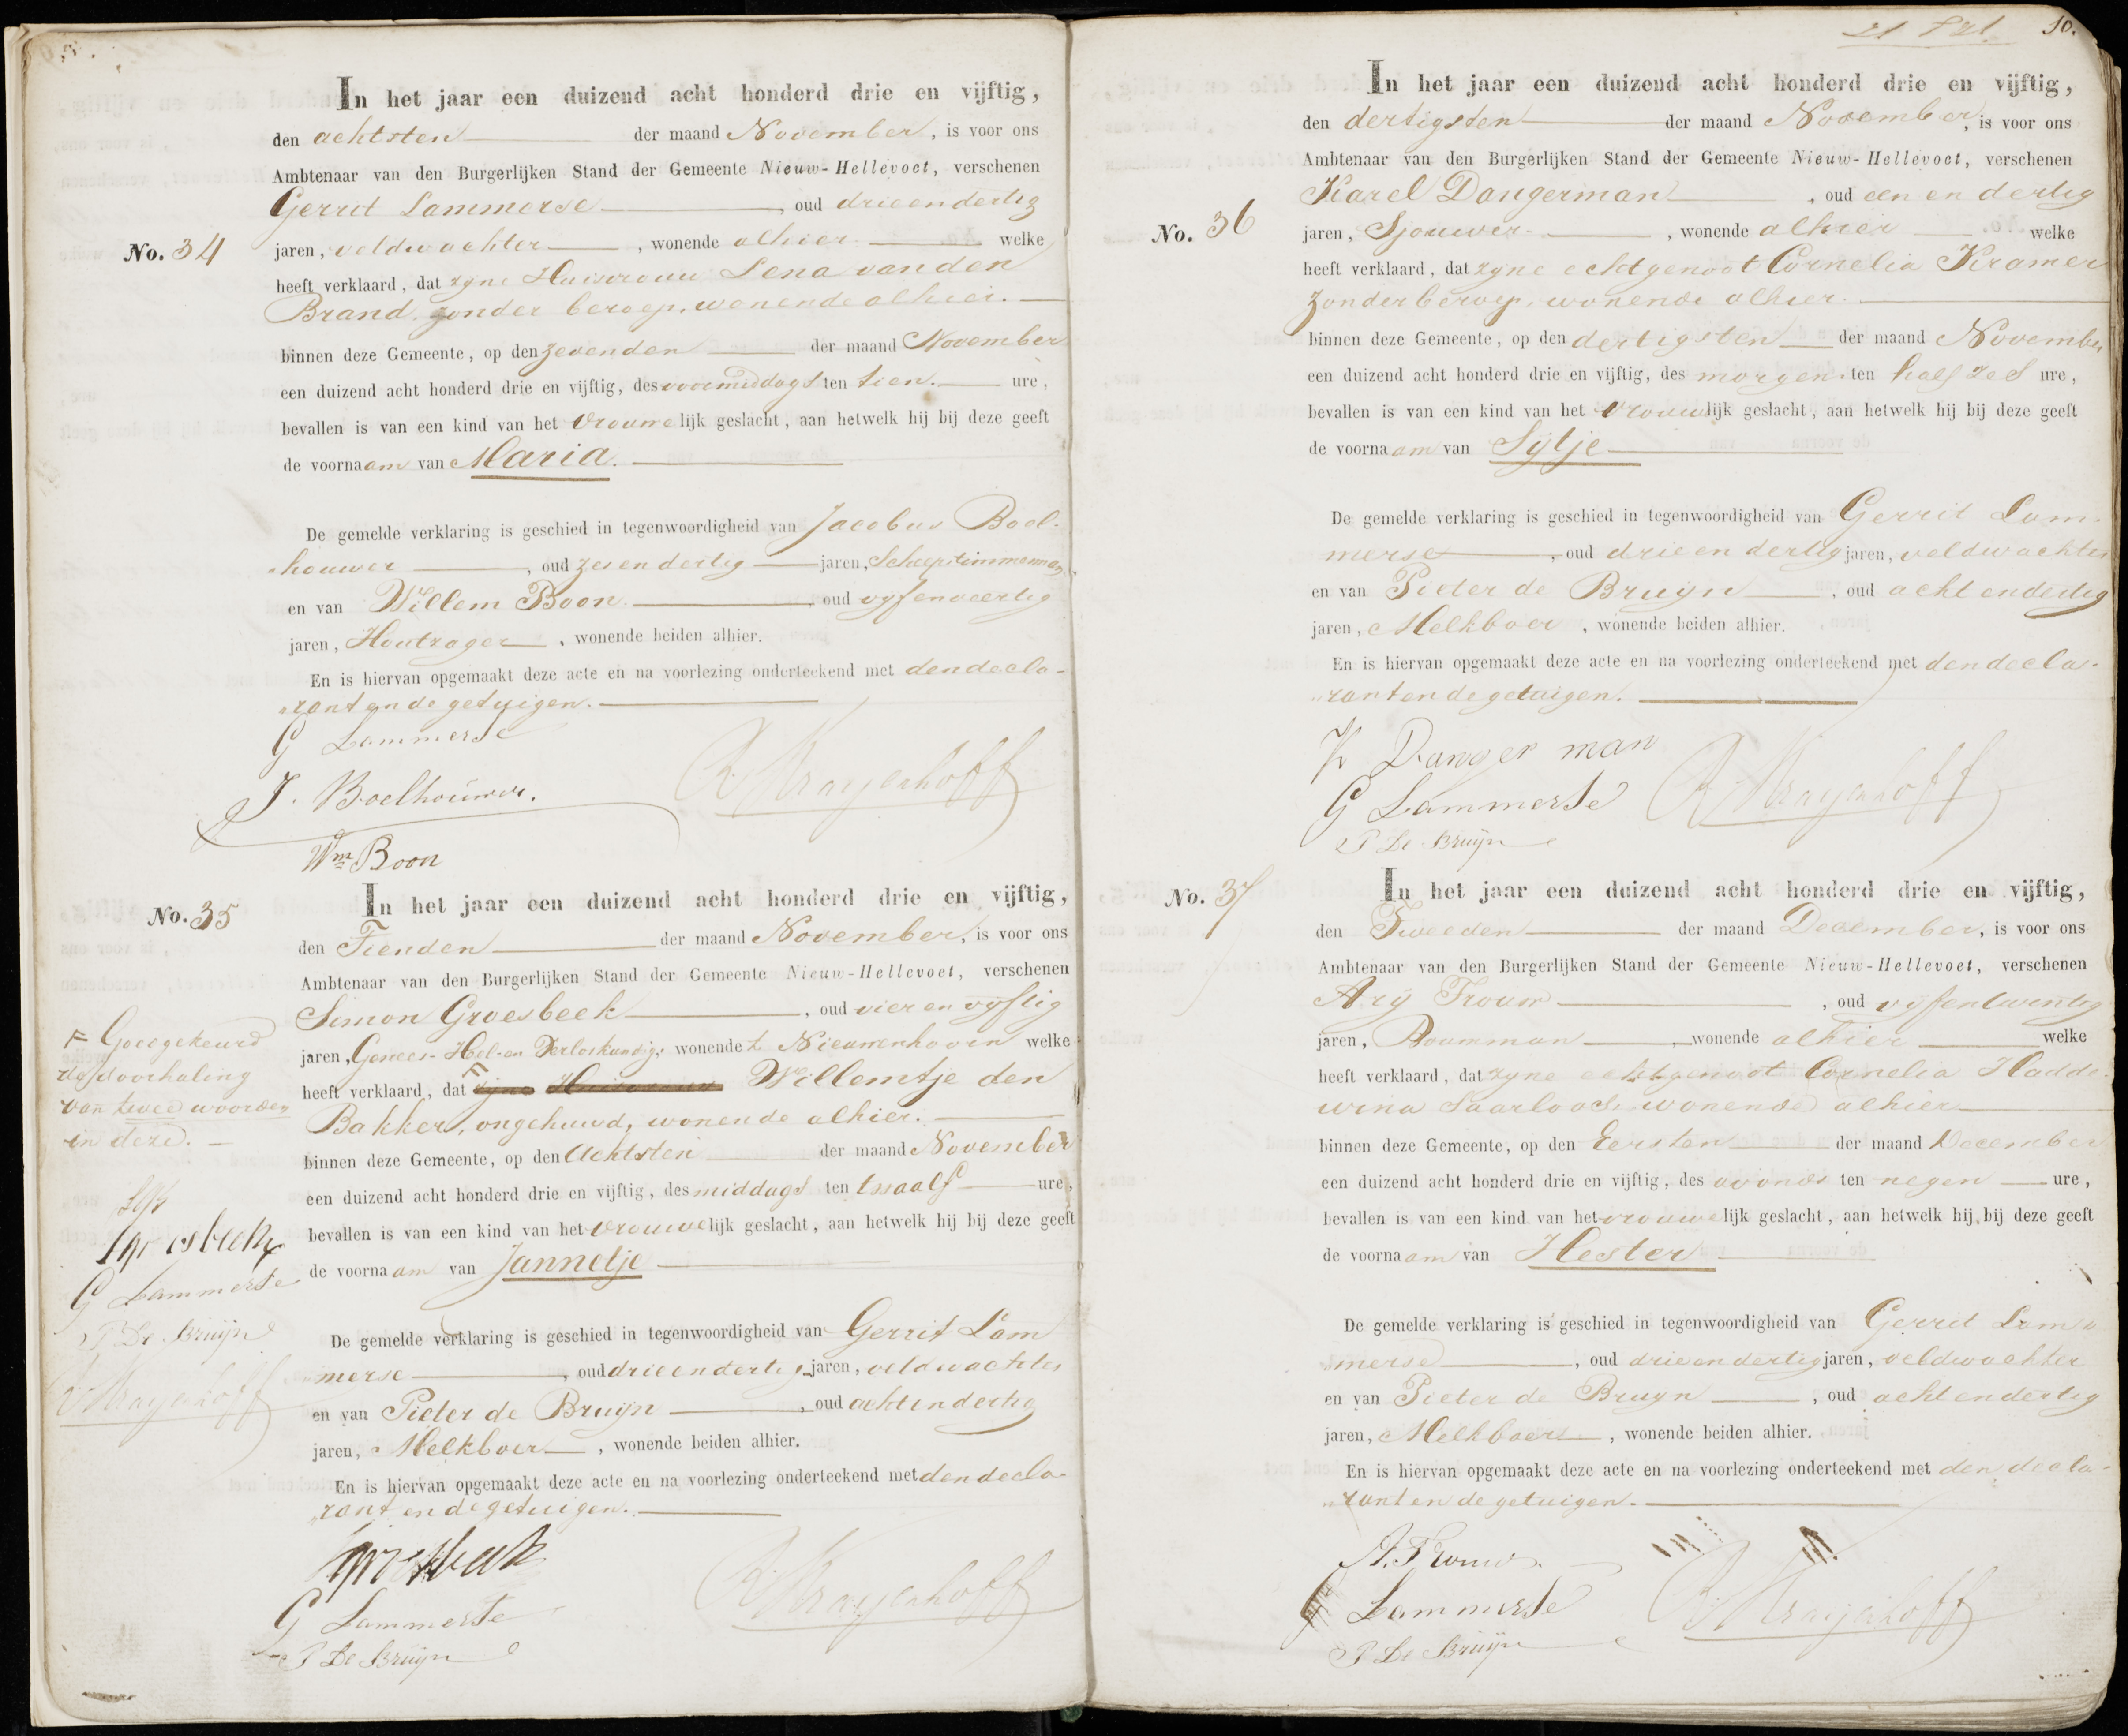 In het jaar een duizend acht honderd drie en vijftig,
den achtsten der maand November, is voor ons
Ambtenaar van den Burgerlijken Stand der Gemeente Nieuw-Hellevoet, verschenen
Gerrit Lammerse, oud drieendertig
No. 34
jaren, veldwachter, wonende alhier welke
heeft verklaard, dat zyne Huisvrouw Lena van den
Brand, zonder beroep, wonende alhier.
binnen deze Gemeente, op den zevenden der maand November
een duizend acht honderd drie en vijftig, des voormiddags ten tien. ure,
bevallen is van een kind van het vrouwelijk geslacht, aan hetwelk hij bij deze geeft
de voornaam van Maria.
De gemelde verklaring is geschied in tegenwoordigheid van Jacobus Boel-
houwer, oud zesendertig jaren, Scheepstimmerman,
en van Willem Boon. oud vyfenveertig
jaren, Houtzager, wonende beiden alhier.
En is hiervan opgemaakt deze acte en na voorlezing onderteekend met den decla-
rant en de getuigen.
G Lammerse
J. Boelhouwer.
Krayenhoff
Wm Boon
No. 35
In het jaar een duizend acht honderd drie en vijftig,
den Tienden der maand November, is voor ons
Ambtenaar van den Burgerlijken Stand der Gemeente Nieuw-Hellevoet, verschenen
Simon Groesbeek, oud vier en vyftig
jaren, Genees- Heel- en Verloskundige wonende te Nieuwenhoorn welke
heeft verklaard, dat zyne Huisvrouw Willemtje den
Bakker, ongehuwd, wonende alhier.
binnen deze Gemeente, op den Achtsten der maand November
een duizend acht honderd drie en vijftig, des middags ten twaalf ure,
bevallen is van een kind van het vrouwelijk geslacht, aan hetwelk hij bij deze geeft
de voornaam van Jannetje
Goedgekeurd
de doorhaling
van twee woorden
in deze.
Groesbeek
G Lammerse
P De Bruijn
Krayenhoff
De gemelde verklaring is geschied in tegenwoordigheid van Gerrit Lam
merse, oud drieendertig jaren, veldwachter
en van Pieter de Bruyn, oud achtendertig
jaren, Melkboer, wonende beiden alhier.
En is hiervan opgemaakt deze acte en na voorlezing onderteekend met den decla-
rant en de getuigen.
Groesbeek
G Lammerse
Krayenhoff
P De Bruijn
10.
In het jaar een duizend acht honderd drie en vijftig,
den dertigsten der maand November, is voor ons
Ambtenaar van den Burgerlijken Stand der Gemeente Nieuw-Hellevoet, verschenen
Karel Dangerman, oud een en dertig
No. 36
jaren, Sjouwer, wonende alhier welke
heeft verklaard, dat zyne echtgenoot Cornelia Kramer
zonder beroep, wonende alhier.
binnen deze Gemeente, op den dertigsten der maand November
een duizend acht honderd drie en vijftig, des morgens ten half zes ure,
bevallen is van een kind van het vrouwlijk geslacht, aan hetwelk hij bij deze geeft
de voornaam van Sijtje
De gemelde verklaring is geschied in tegenwoordigheid van Gerrit Lam-
merse, oud drieendertig jaren, veldwachter
en van Pieter de Bruyn, oud achtendertig
jaren, Melkboer, wonende beiden alhier.
En is hiervan opgemaakt deze acte en na voorlezing onderteekend met den decla-
rant en de getuigen.
K Dangerman
G Lammerse
Krayenhoff
P De Bruijn
No. 37
In het jaar een duizend acht honderd drie en vijftig,
den Tweeden der maand December, is voor ons
Ambtenaar van den Burgerlijken Stand der Gemeente Nieuw-Hellevoet, verschenen
Arij Trouw, oud vyfentwintig
jaren, Bouwman, wonende alhier welke
heeft verklaard, dat zyne echtgenoot Cornelia Hadde-
wina Saarloos, wonende alhier
binnen deze Gemeente, op den Eersten der maand December
een duizend acht honderd drie en vijftig, des avonds ten negen ure,
bevallen is van een kind van het vrouwelijk geslacht, aan hetwelk hij bij deze geeft
de voornaam van Hester
De gemelde verklaring is geschied in tegenwoordigheid van Gerrit Lam-
merse, oud drieendertig jaren, veldwachter
en van Pieter de Bruyn, oud achtendertig
jaren, Melkboer, wonende beiden alhier.
En is hiervan opgemaakt deze acte en na voorlezing onderteekend met den decla-
rant en de getuigen.
A. Trouw
G Lammerse
Krayenhoff
P De Bruijn